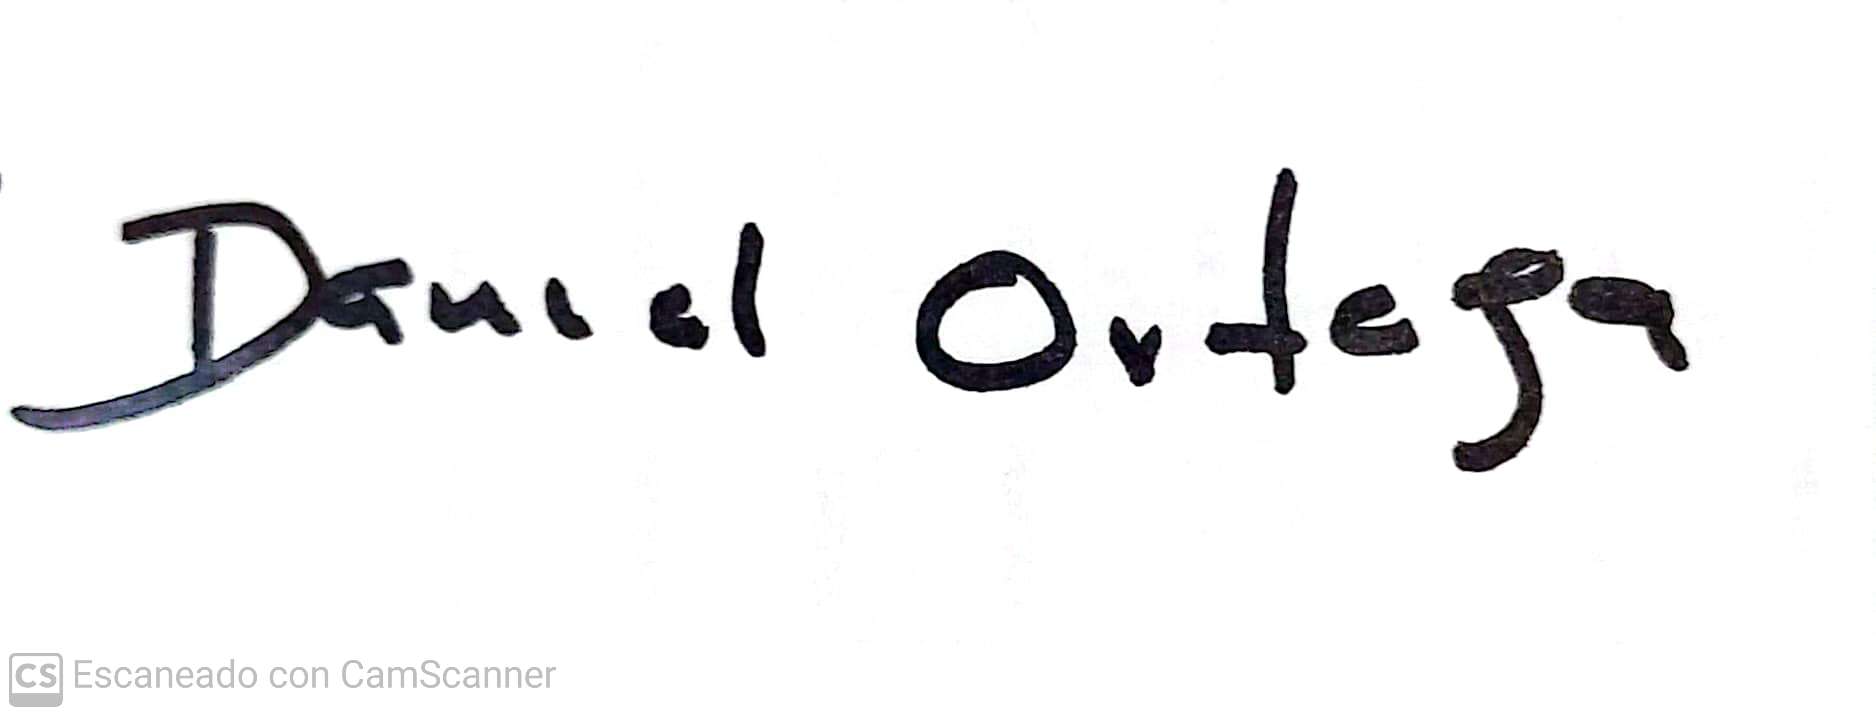 Daniel Ortega
CS Escaneado con CamScanner